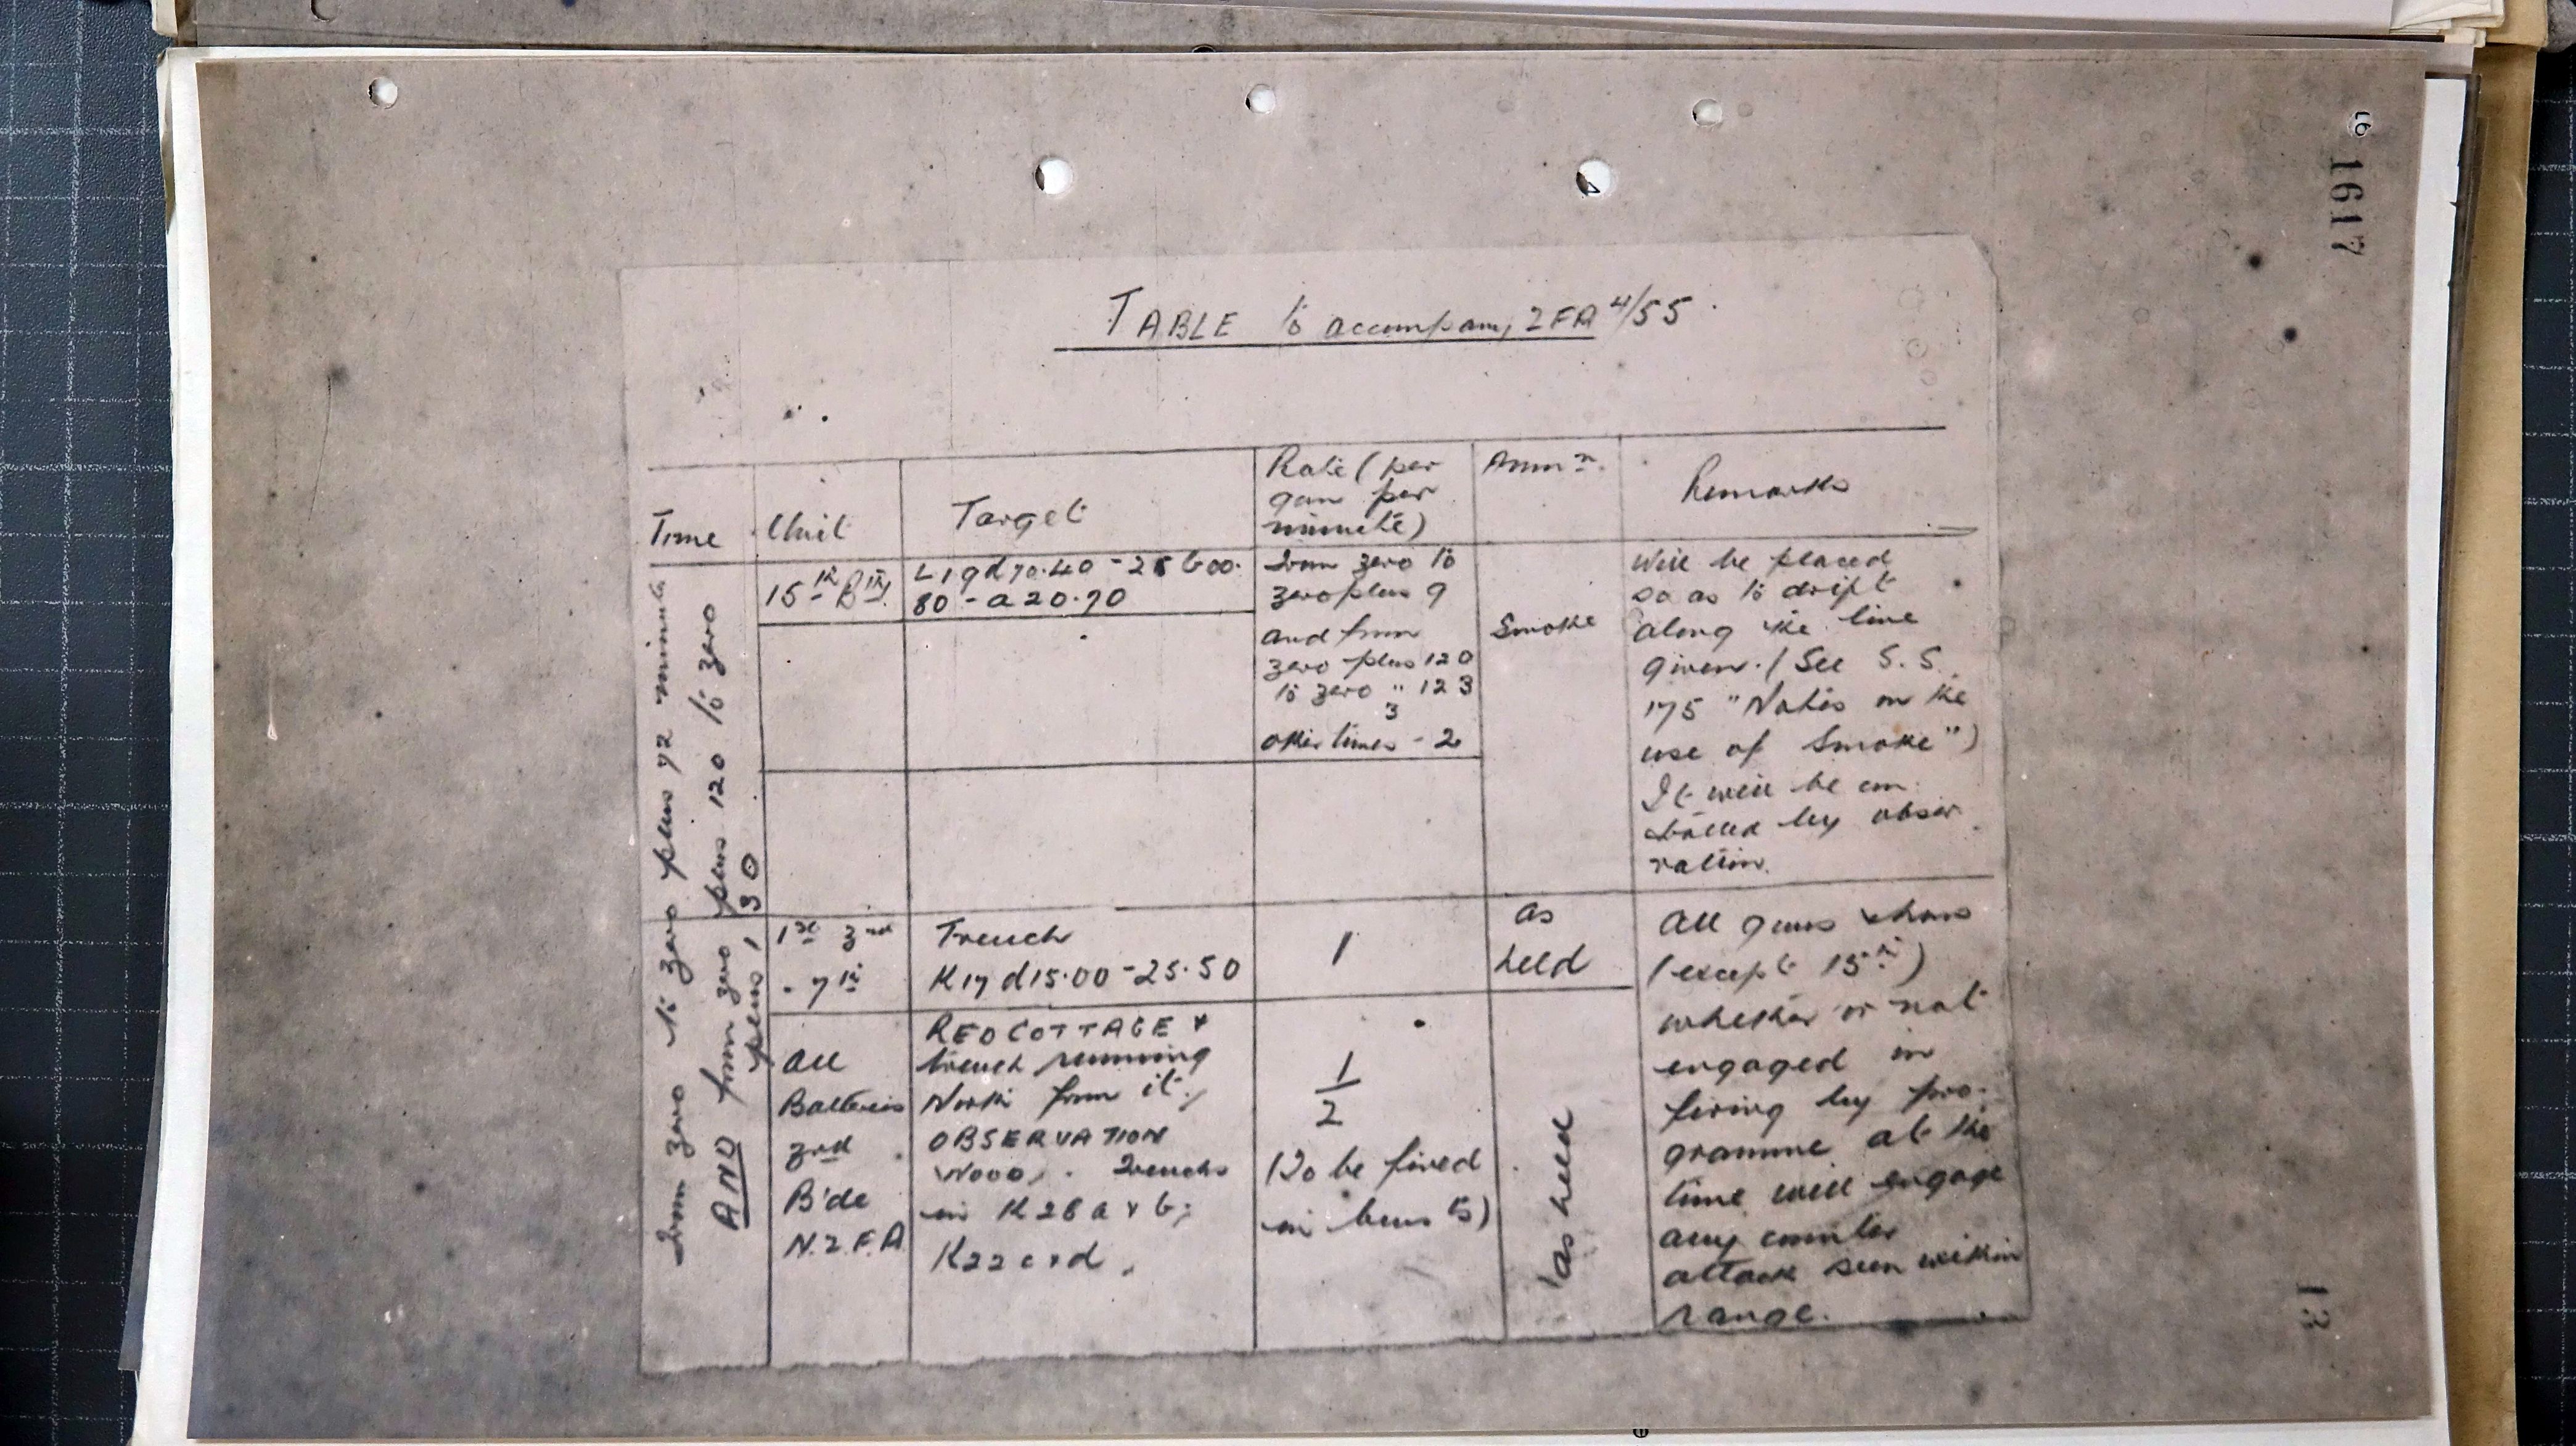 1617
TABLE to accompany 2FA 4/55
Time
Unit
Target
Rate (per
gun per
minute)
Ammn.
Remarks
From zero to zero plus 72 minutes
AND from zero plus 120 to zero
plus 130
15th Bty
L19d70.40 - 25 b00.
80 - a20.70
From zero to
zero plus 9
and from
zero plus 120
to zero " 123
3
other times - 2
Smoke
Will be placed
so as to drift
along the line
given. (See S.S.
175 "Notes on the
use of Smoke")
It will be con
trolled by obser
vation.
1st 3rd
- 7th
Trench
K17 d15.00 - 25.50
1
as
held
All guns
(except 15th)
whether or not
engaged in
firing by pro-
gramme at the
time will engage
any counter
attack seen within
range.
All
Batteries
3rd
B'de
N.Z.F.A
RED COTTAGE &
trench running
North from it;
OBSERVATION
WOOD; Trenches
in K28 a & b;
K22 c & d.
1/2
(To be fired
in bursts)
as held
13